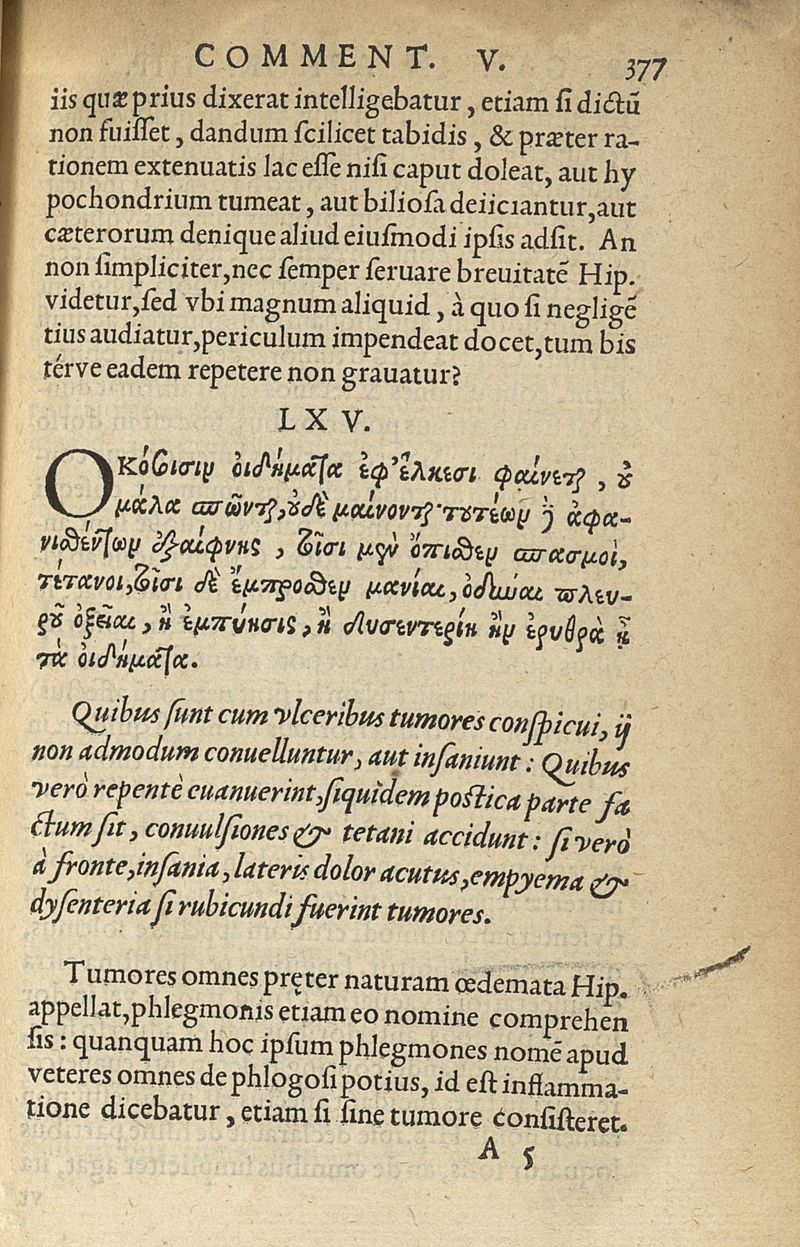 COMMENT. V. 377
iis quæ prius dixerat intelligebatur, etiam ſi dictũ
non fuiſſet, dandum ſcilicet tabidis, & præter ra-
tionem extenuatis lac eſſe niſi caput doleat, aut hy
pochondrium tumeat, aut bilioſa deiiciantur, aut
cæterorum denique aliud eiuſmodi ipſis adſit. An
non ſimpliciter, nec ſemper ſeruare breuitatẽ Hip.
videtur, ſed vbi magnum aliquid, à quo ſi negligẽ
tius audiatur, periculum impendeat docet, tum bis
térve eadem repetere non grauatur?
LXV.
Οκόσοισιν οἰδήματα ἐφ' ἕλκεσι φαίνεται, οὐ
μάλα σπῶνται, οὐδὲ μαίνονται· τουτέων δὲ ἀφα-
νισθέντων ἐξαίφνης, τοῖσι μὲν ὄπισθεν σπασμοὶ,
τέτανοι, τοῖσι δὲ ἔμπροσθεν μανίαι, ὀδύναι πλευ-
ροῦ ὀξεῖαι, ἢ ἐμπύησις, ἢ δυσεντερίη ἢν ἐρυθρὰ ᾖ
τὰ οἰδήματα.
Quibus ſunt cum vlceribus tumores conſpicui, ij
non admodum conuelluntur, aut inſaniunt: Quibus
verò repentè euanuerint, ſiquidem poſtica parte fa
ctum ſit, conuulſiones & tetani accidunt: ſi verò
à fronte, inſania, lateris dolor acutus, empyema &
dyſenteria ſi rubicundi fuerint tumores.
Tumores omnes pręter naturam œdemata Hip.
appellat, phlegmonis etiam eo nomine comprehen
ſis: quanquam hoc ipſum phlegmones nomẽ apud
veteres omnes de phlogoſi potius, id eſt inflamma-
tione dicebatur, etiam ſi ſine tumore conſiſteret.
A 5